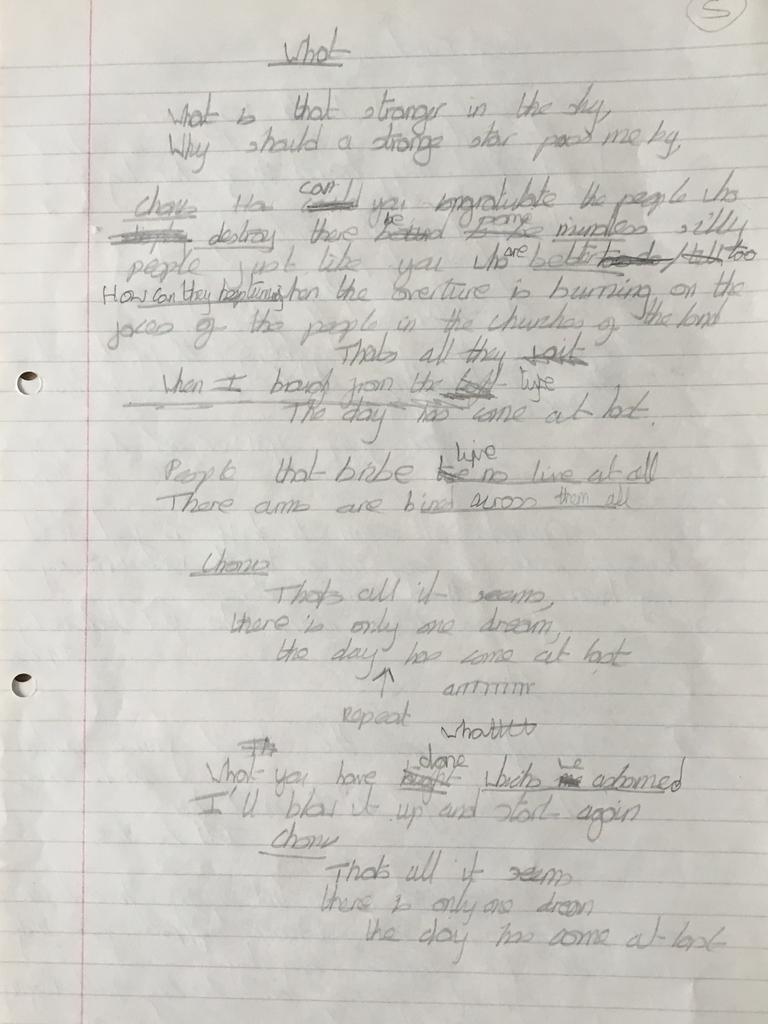 5
What
What is that stranger in the sky,
Why should a strange star pass me by,
can
Chorus How could you congratulate the people who
be some
destroy there behind to be mindless silly
people just like you who are better too
How can they be when the overture is burning on the
faces of the people in the churches of the land
Thats all they
When I from the type
The day has come at last.
live
People that bribe no live at all
There arms are across them all
Chorus
Thats all it seems,
there is only one dream,
the day has come at last
↑ arrrrrrr
Repeat
whatttt
Th
done we
What you have bought which me ashamed
I'll blow it up and start again
Chorus
Thats all it seems
there is only one dream
the day has come at last